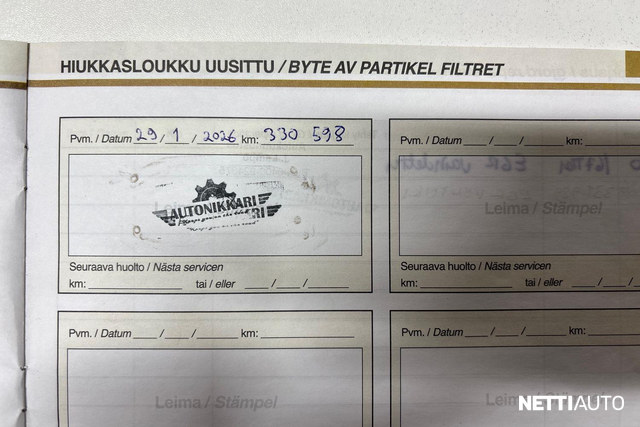 HIUKKASLOUKKU UUSITTU / BYTE AV PARTIKEL FILTRET
Pvm. / Datum 29 / 1 / 2026 km: 330 598
AUTONIKKARI
Seuraava huolto / Nästa servicen
km: ____ tai / eller ___/___/___
Pvm. / Datum ___/___/___ km:
EGR
Leima / Stämpel
Seuraava huolto / Nästa servicen
km: ____ tai / eller ___/___/___
Pvm. / Datum ___/___/___ km: ____
Leima / Stämpel
Pvm. / Datum ___/___/___ km:
Leima / Stämpel
NETTIAUTO